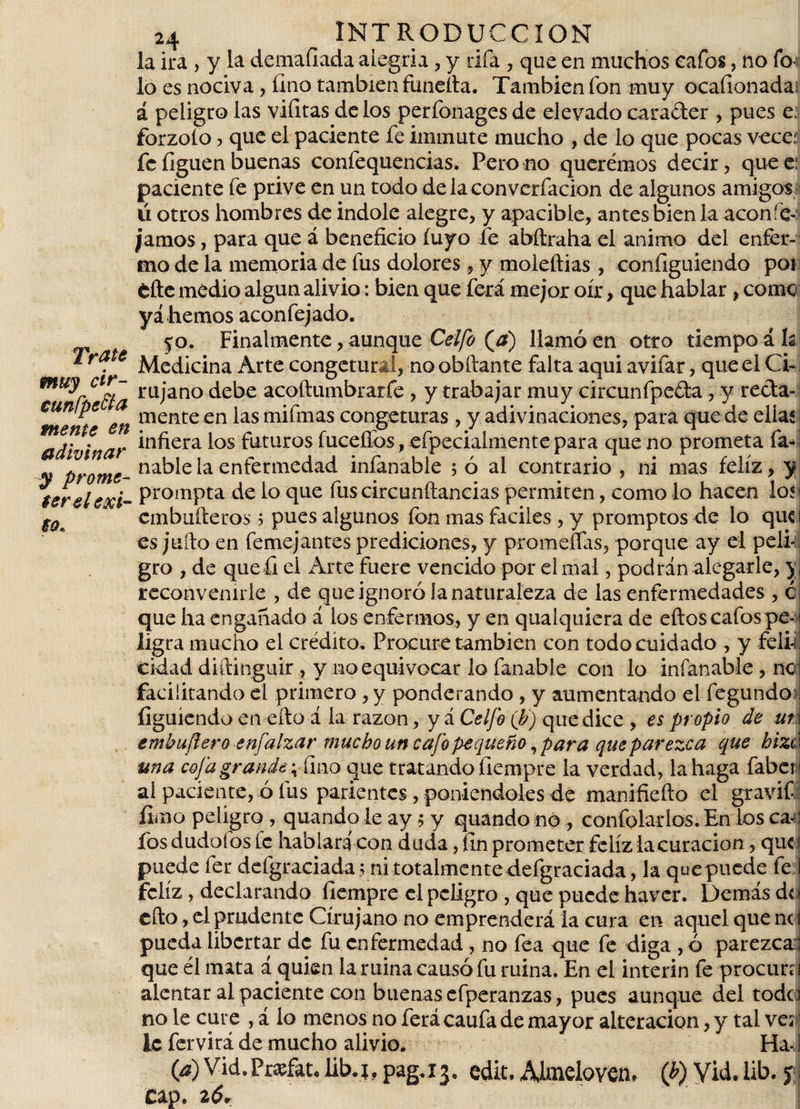 24 INTRODUCCION
la ira , y la demaſiada alegria , y riſa , que en muchos caſos , no ſo-
lo es nociva , ſino tambien funeſta. Tambien ſon muy ocaſionada
á peligro las viſitas de los perſonages de elevado caracter , pues e
forzoſo , que el paciente ſe immute mucho , de lo que pocas vece
ſe ſiguen buenas conſequencias. Pero no querémos decir , que e
paciente ſe prive en un todo de la converſacion de algunos amigos
ú otros hombres de indole alegre, y apacible, antes bien la aconſe-
jamos , para que á beneficio ſuyo ſe abſtraha el animo del enfer-
mo de la memoria de ſus dolores , y moleſtias , conſiguiendo por
éſte medio algun alivio : bien que ſerá mejor oír , que hablar , como
yá hemos aconſejado.
50. Finalmente , aunque Celſo (a) llamó en otro tiempo á la
Medicina Arte congetural, no obſtante falta aqui aviſar , que el Ci-
rujano debe acoſtumbrarſe , y trabajar muy circunſpecta , y recta-
mente en las miſmas congeturas , y adivinaciones, para que de ellas
infiera los futuros ſuceſſos, eſpecialmente para que no prometa ſa-
nable la enfermedad inſanable ; ó al contrario , ni mas felíz , y
prompta de lo que ſus circunſtancias permiten , como lo hacen los
embuſteros ; pues algunos ſon mas faciles , y promptos de lo que
es juſto en ſemejantes prediciones, y promeſſas, porque ay el peli-
gro , de que ſi el Arte fuere vencido por el mal , podrán alegarle, y
reconvenirle , de que ignoró la naturaleza de las enfermedades , ó
que ha engañado á los enfermos, y en qualquiera de eſtos caſos pe-
ligra mucho el crédito. Procure tambien con todo cuidado , y feli-
cidad diſtinguir , y no equivocar lo ſanable con lo inſanable , no
facilitando el primero , y ponderando , y aumentando el ſegundo
ſiguiendo en eſto á la razon , y á Celſo (b) que dice , es propio de un
embuſtero enſalzar mucho un caſo pequeño , para que parezca que hizo
una coſa grande ; ſino que tratando ſiempre la verdad, la haga ſaber
al paciente, ó ſus parientes , poniendoles de manifieſto el graviſ-
ſimo peligro , quando le ay ; y quando no , conſolarlos. En los ca-
ſos dudoſos ſe hablará con duda , ſin prometer felíz la curacion , que
puede ſer deſgraciada ; ni totalmente deſgraciada , la que puede ſe
felíz , declarando ſiempre el peligro , que puede haver. Demás de
eſto , el prudente Cirujano no emprenderá la cura en aquel que no
pueda libertar de ſu enfermedad , no ſea que ſe diga , ó parezca
que él mata á quien la ruina causó ſu ruina. En el interin ſe procure
alentar al paciente con buenas eſperanzas, pues aunque del todo
no le cure , á lo menos no ſerá cauſa de mayor alteracion , y tal vez
le ſervirá de mucho alivio. Ha-
(a) Vid. Præfat. lib.1. pag.13. edit. Almeloven. (b) Vid. lib. 5
cap. 26.
Trate
muy cir-
cunſpecta
mente en
adivinar
y prome-
ter el exi-
to.